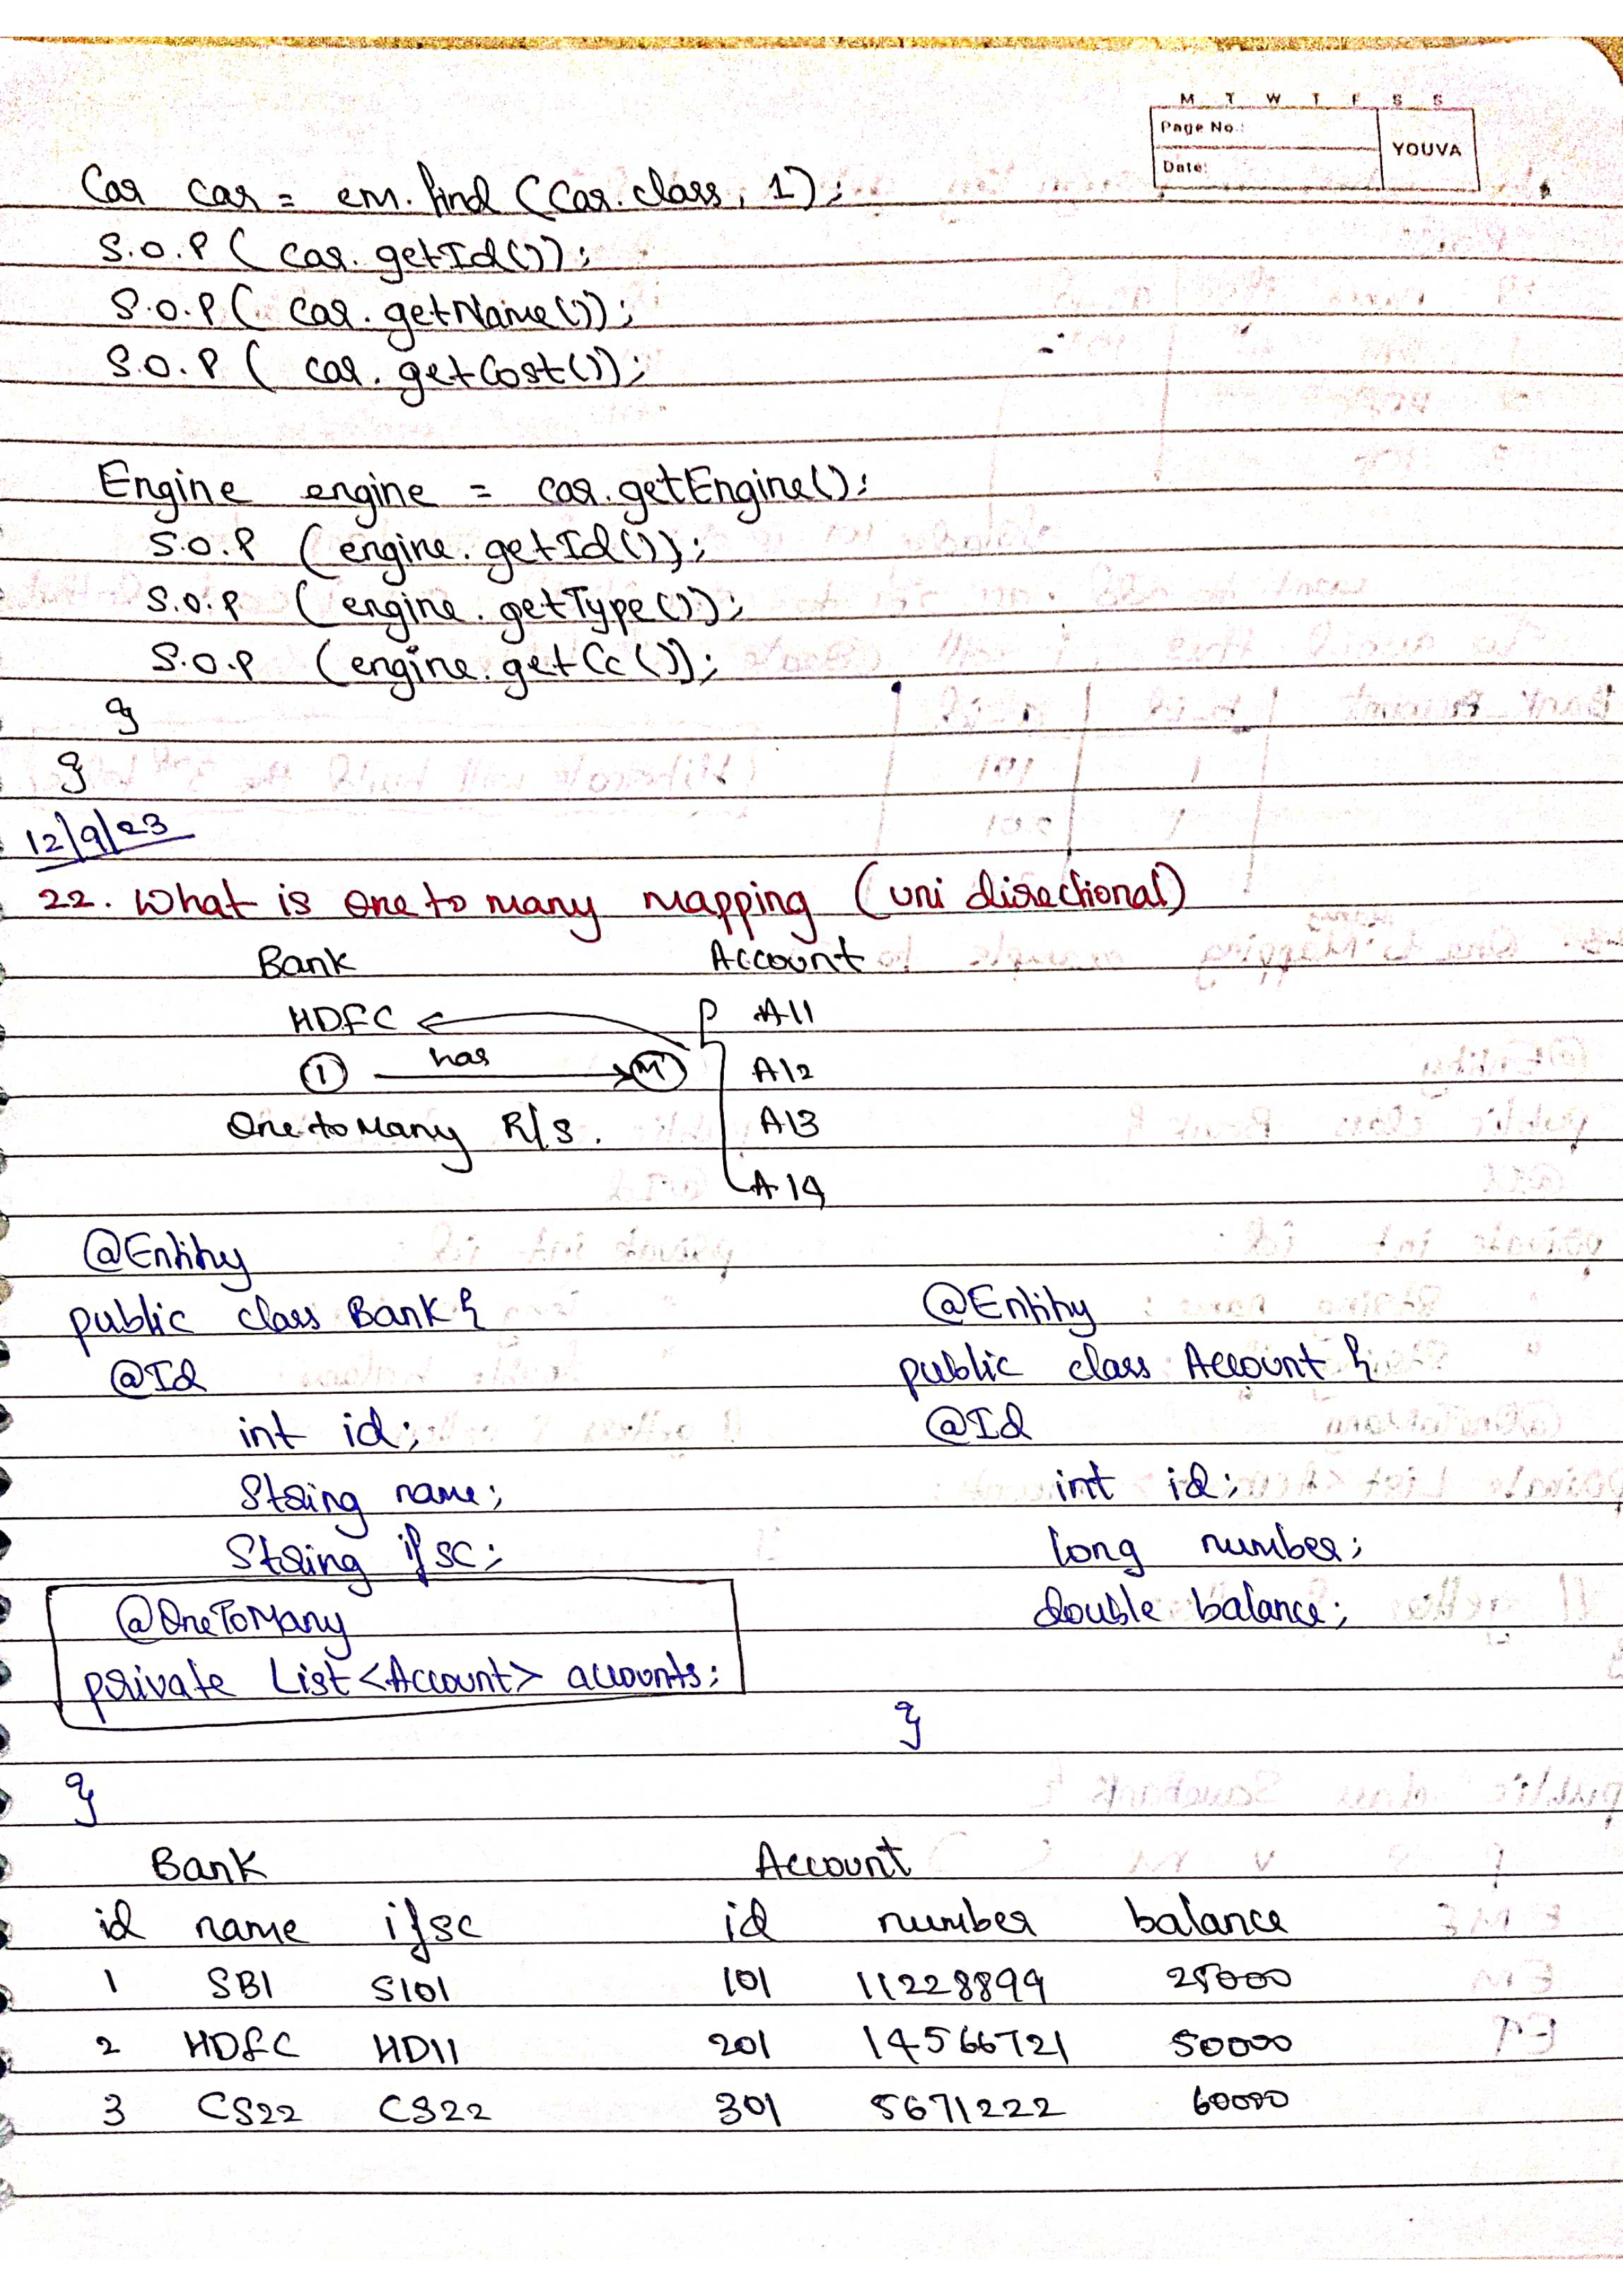 M T W T F S S
Page No.:
Date:
YOUVA
Car car = em.find (Car.class, 1);
S.O.P ( car.getId());
S.O.P ( car.getName());
S.O.P ( car.getCost());
Engine engine = car.getEngine();
S.O.P (engine.getId());
S.O.P (engine.getType());
S.O.P (engine.getCc());
}
}
12/9/23
22. What is one to many mapping (uni directional)
Bank Account
HDFC A11
1 has M A12
One to Many R/S. A13
A14
@Entity
public class Bank {
@Id
int id;
String name;
String ifsc;
@OneToMany
private List<Account> accounts;
}
@Entity
public class Account {
@Id
int id;
long number;
double balance;
}
Bank Account
id name ifsc id number balance
1 SBI S101 101 11228899 25000
2 HDFC HD11 201 14566721 50000
3 CS22 CS22 301 5671222 60000